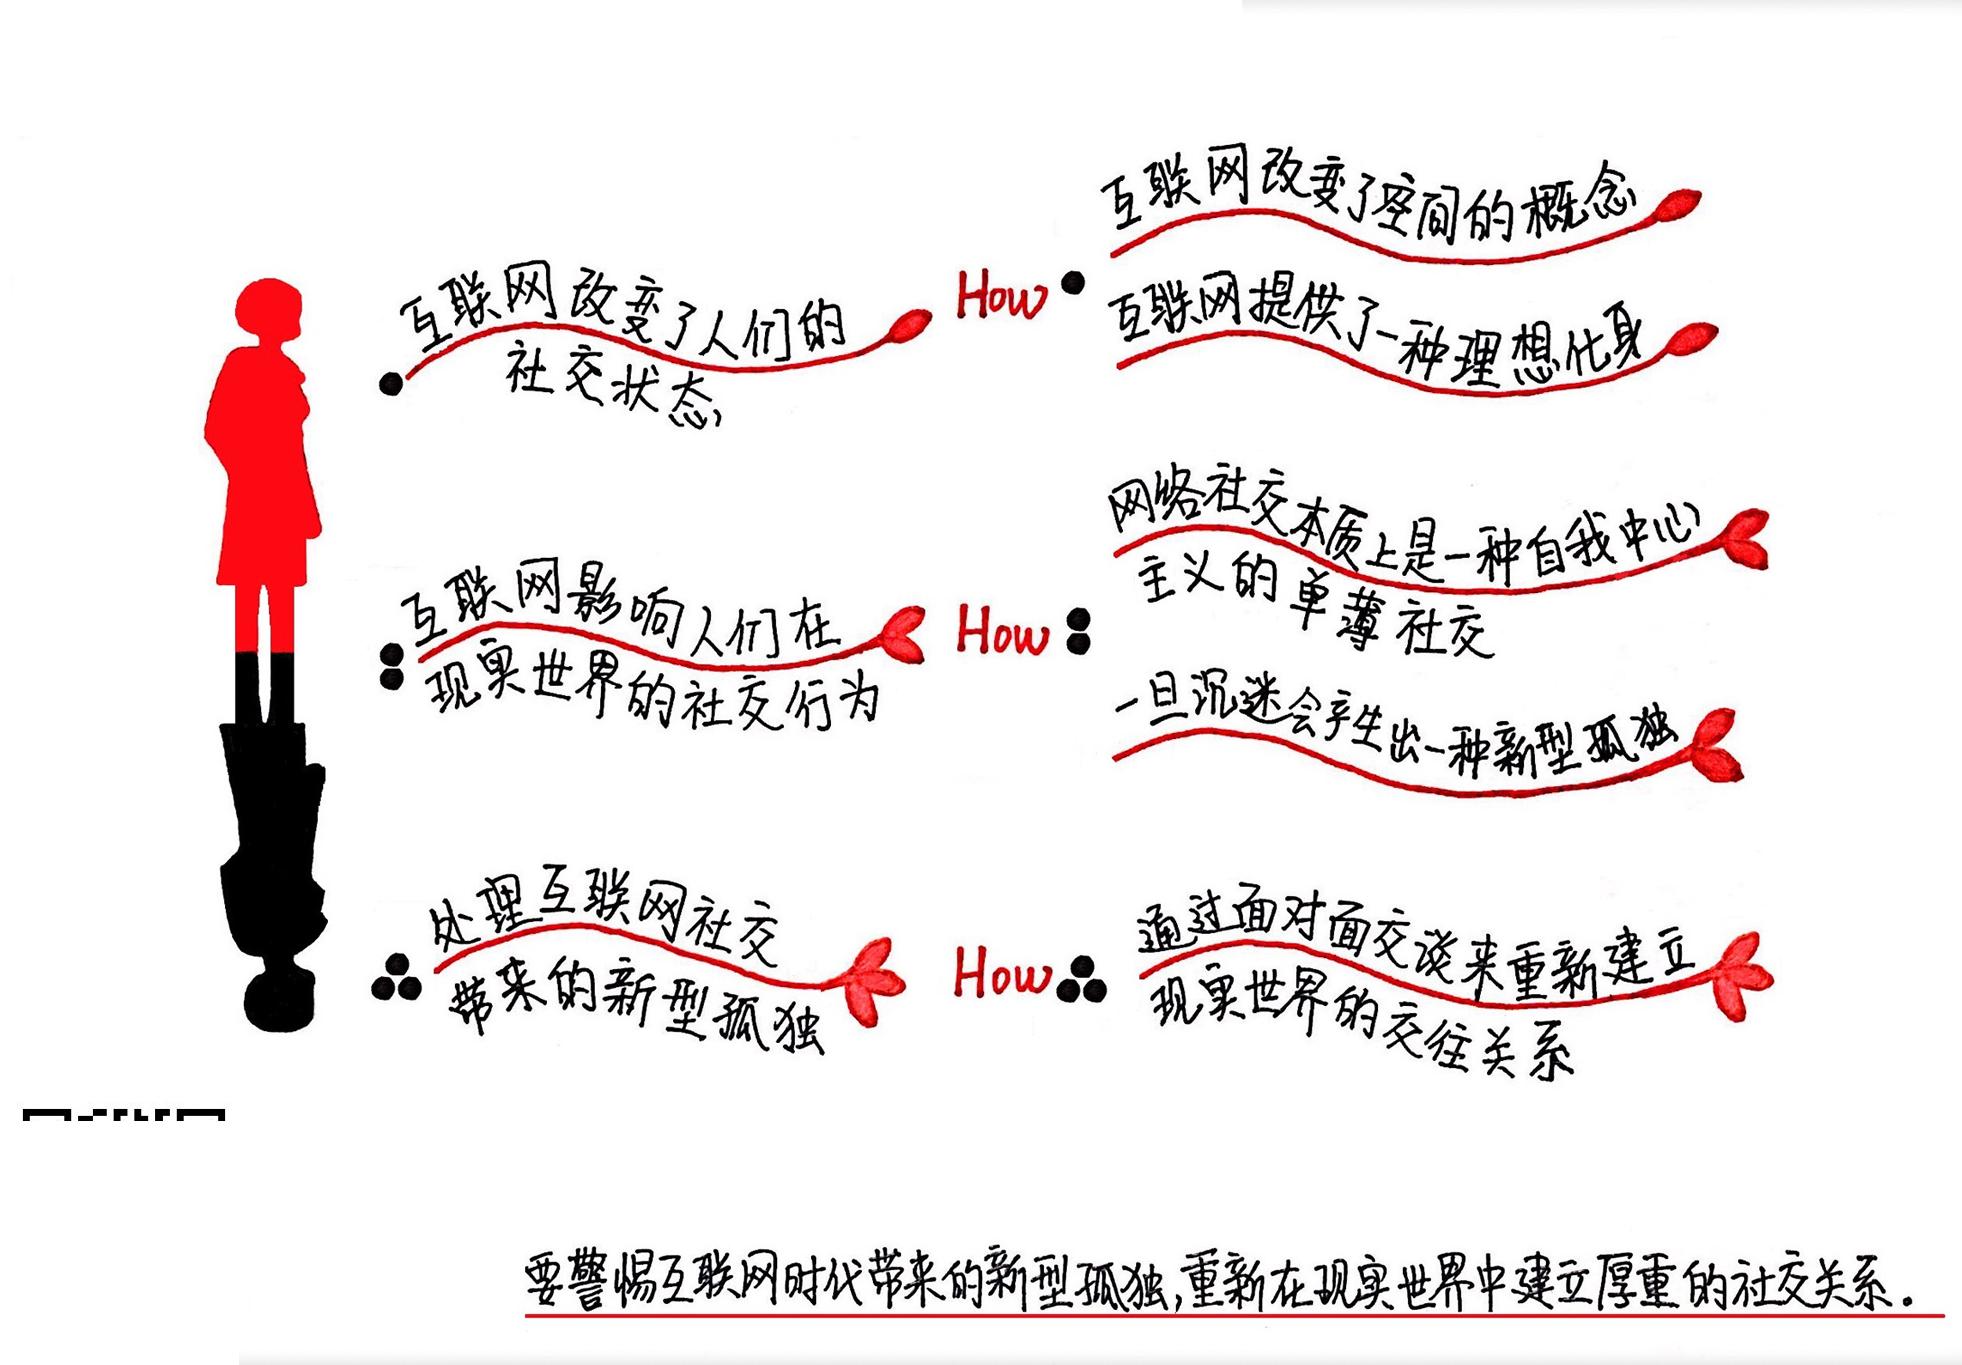 互联网改变了人们的
社交状态
How
互联网改变了空间的概念
互联网提供了一种理想化身
互联网影响人们在
现实世界的社交行为
How
网络社交本质上是一种自我中心
主义的单薄社交
一旦沉迷会产生出一种新型孤独
处理互联网社交
带来的新型孤独
How
通过面对面交谈来重新建立
现实世界的交往关系
要警惕互联网时代带来的新型孤独,重新在现实世界中建立厚重的社交关系。